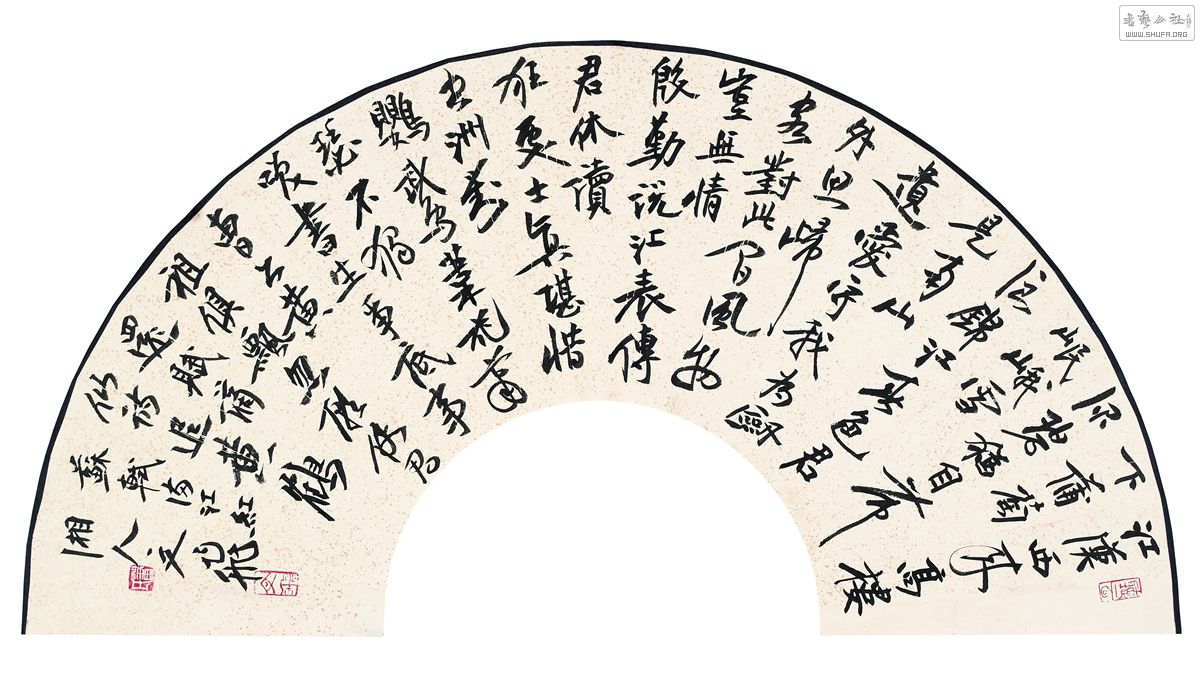 江漢西來高樓
下蒲萄
深碧猶自帶
岷峨雪
浪錦江春色君
是南山
遺愛守我為劍
外思歸
客對此間風物
豈無情
殷勤說江表傳
君休讀
狂處士真堪惜
空洲對
鸚鵡葦花蕭
瑟不獨
笑書生爭底事
曹公黃
祖俱飄忽願使君
還賦謫
仙詩追黃鶴
蘇軾滿江紅
湘人
書藝公社
WWW.SHUFA.ORG